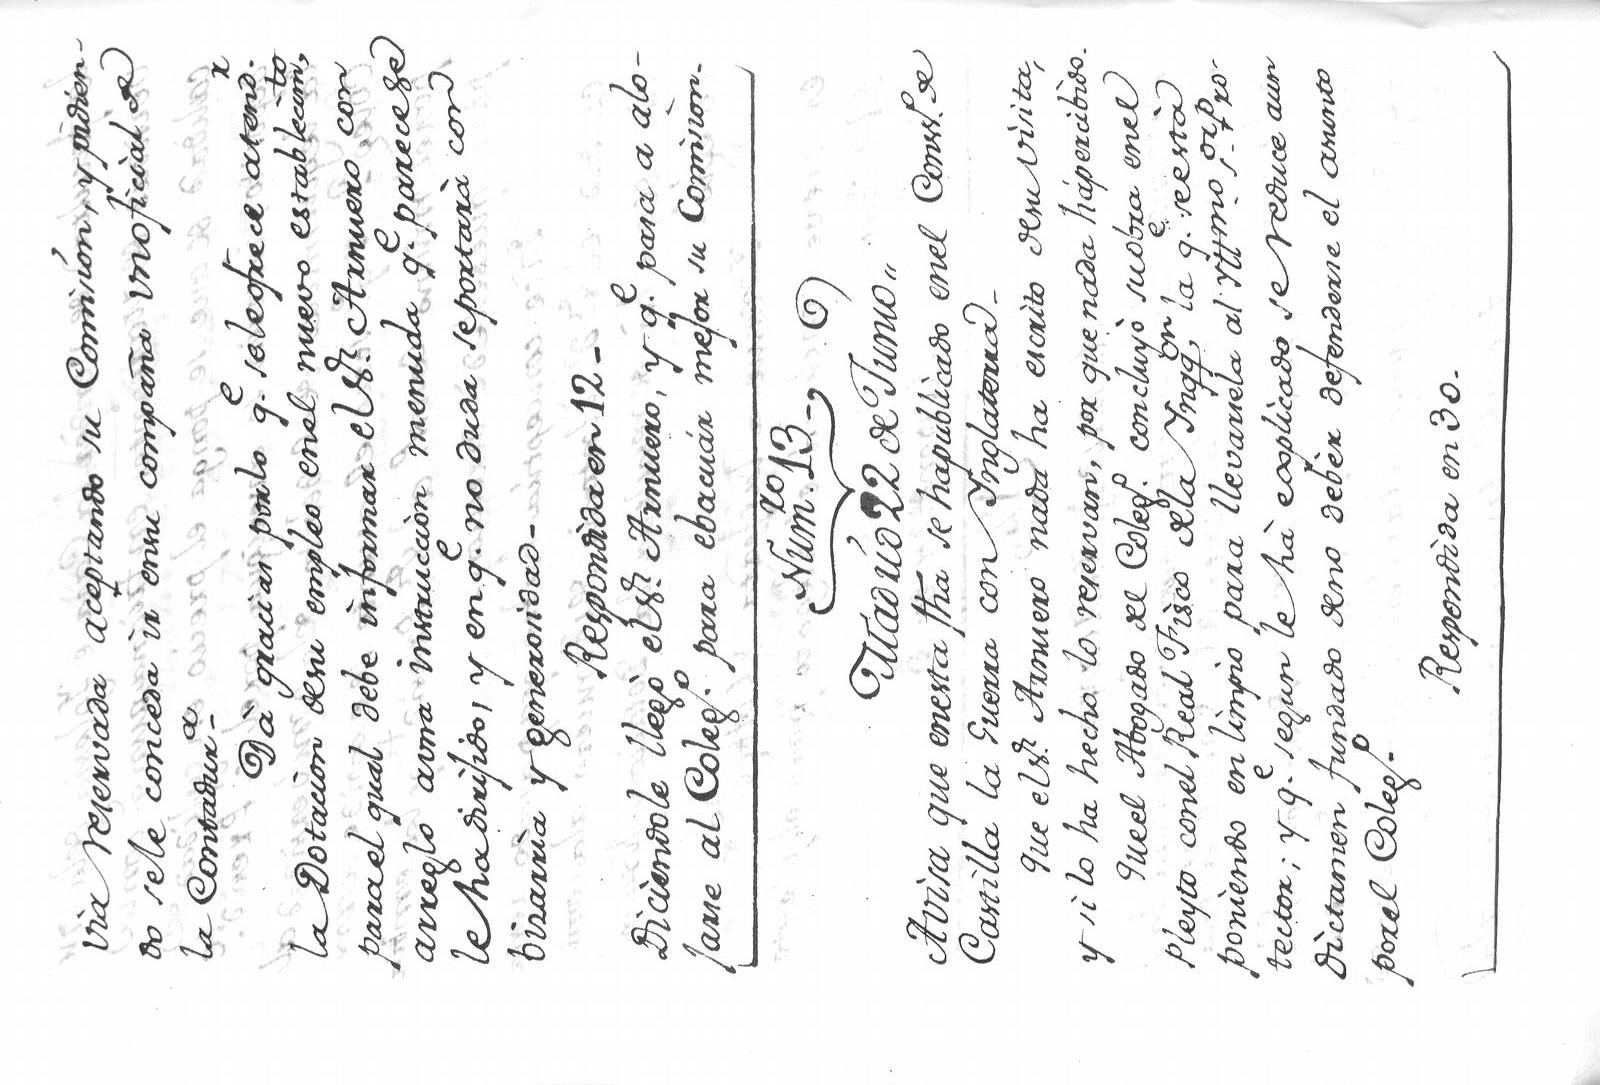 via reservada aceptando su Comisión, y pidien-
do se le conceda ir en su compañia un oficial de
la Contadur.ª
Dà gracias por lo q.e se le ofrece atend.r
la Dotacion de su empleo en el nuevo establecim.to,
para el qual debe informar el S.or Armero con
arreglo a una instruccion menuda q.e parece se
le ha dirijido, y en q.e no duda se portarà con
bizarria y generosidad-
Respondida en 12-
Diciendole llegò el S.or Armero, y q.e pasa a alo-
jarse al Coleg.o para ebacuar mejor su Comision.
Num.ro 13-
Madrid 22 de Junio
Avisa que en esta fha se ha publicado en el Cons.o de
Castilla la Guerra con Inglaterra-
que el S.or Armero nada ha escrito de su visita,
y si lo ha hecho lo reservan, por que nada há percibido.
que el Abogado del Coleg.o concluyò su obra en el
Pleyto con el Real Fisco de la Inqq.on, la q.e se està
poniendo en limpio para llevarsela al Ittmo S.or Pro-
tector; y q.e segun le hà explicado se reduce a un
dictamen fundado de no debèr defenderse el asunto
por el Coleg.o
Respondida en 30.